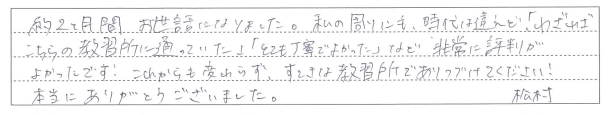 約2ヶ月間 お世話になりました。私の周りにも、時代は違えど、「わざわざ
こちらの教習所に通っていた」「とても丁寧でよかった」など 非常に評判が
よかったです! これからも変わらず、すてきな教習所でありつづけてください!
本当にありがとうございました。 松村